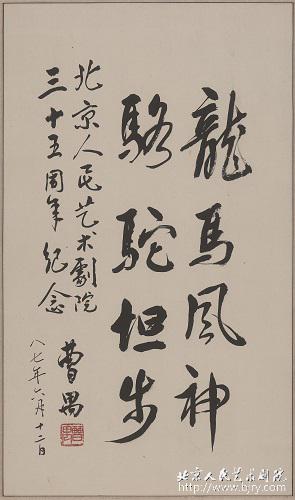 龍馬風神
駱駝坦步
北京人民艺术劇院
三十五周年纪念
曹禺
八七年六月十二日
北京人民艺术剧院
http://www.bjry.com/